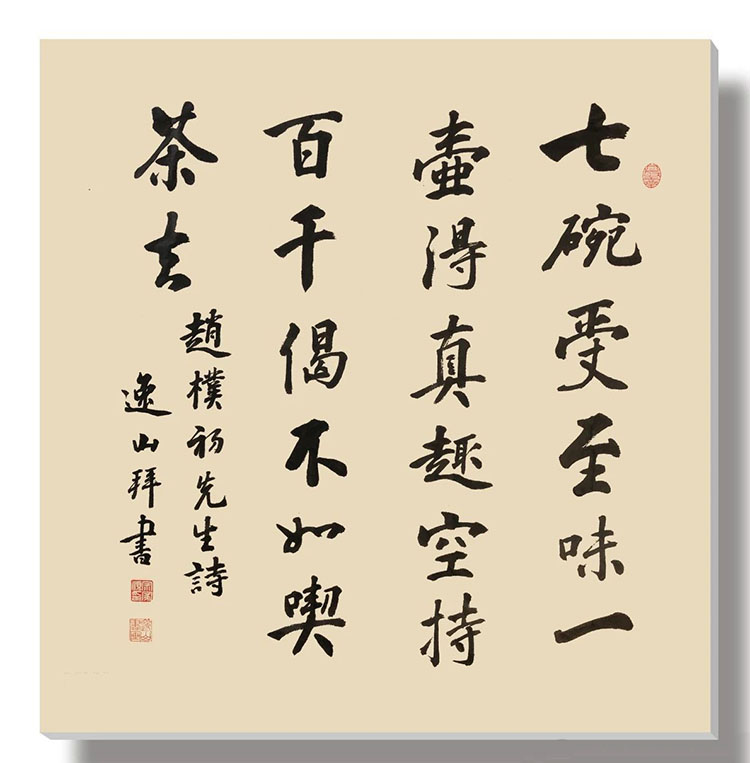 七碗受至味一
壺得真趣空持
百千偈不如喫
茶去
趙樸初先生詩
逸山拜書